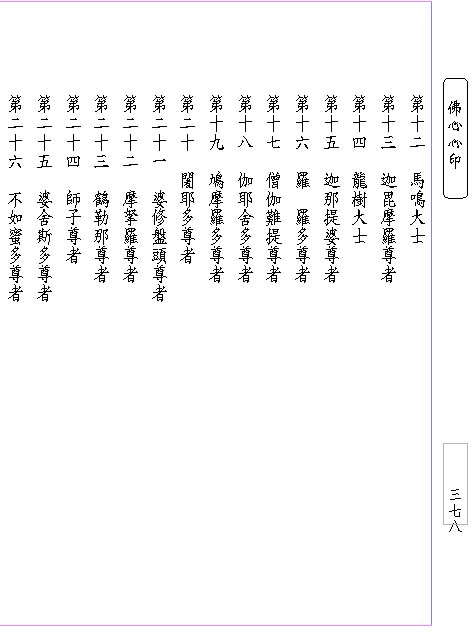 佛心心印
第十二　馬鳴大士
第十三　迦毘摩羅尊者
第十四　龍樹大士
第十五　迦那提婆尊者
第十六　羅　羅多尊者
第十七　僧伽難提尊者
第十八　伽耶舍多尊者
第十九　鳩摩羅多尊者
第二十　闍耶多尊者
第二十一　婆修盤頭尊者
第二十二　摩拏羅尊者
第二十三　鶴勒那尊者
第二十四　師子尊者
第二十五　婆舍斯多尊者
第二十六　不如蜜多尊者
三七八